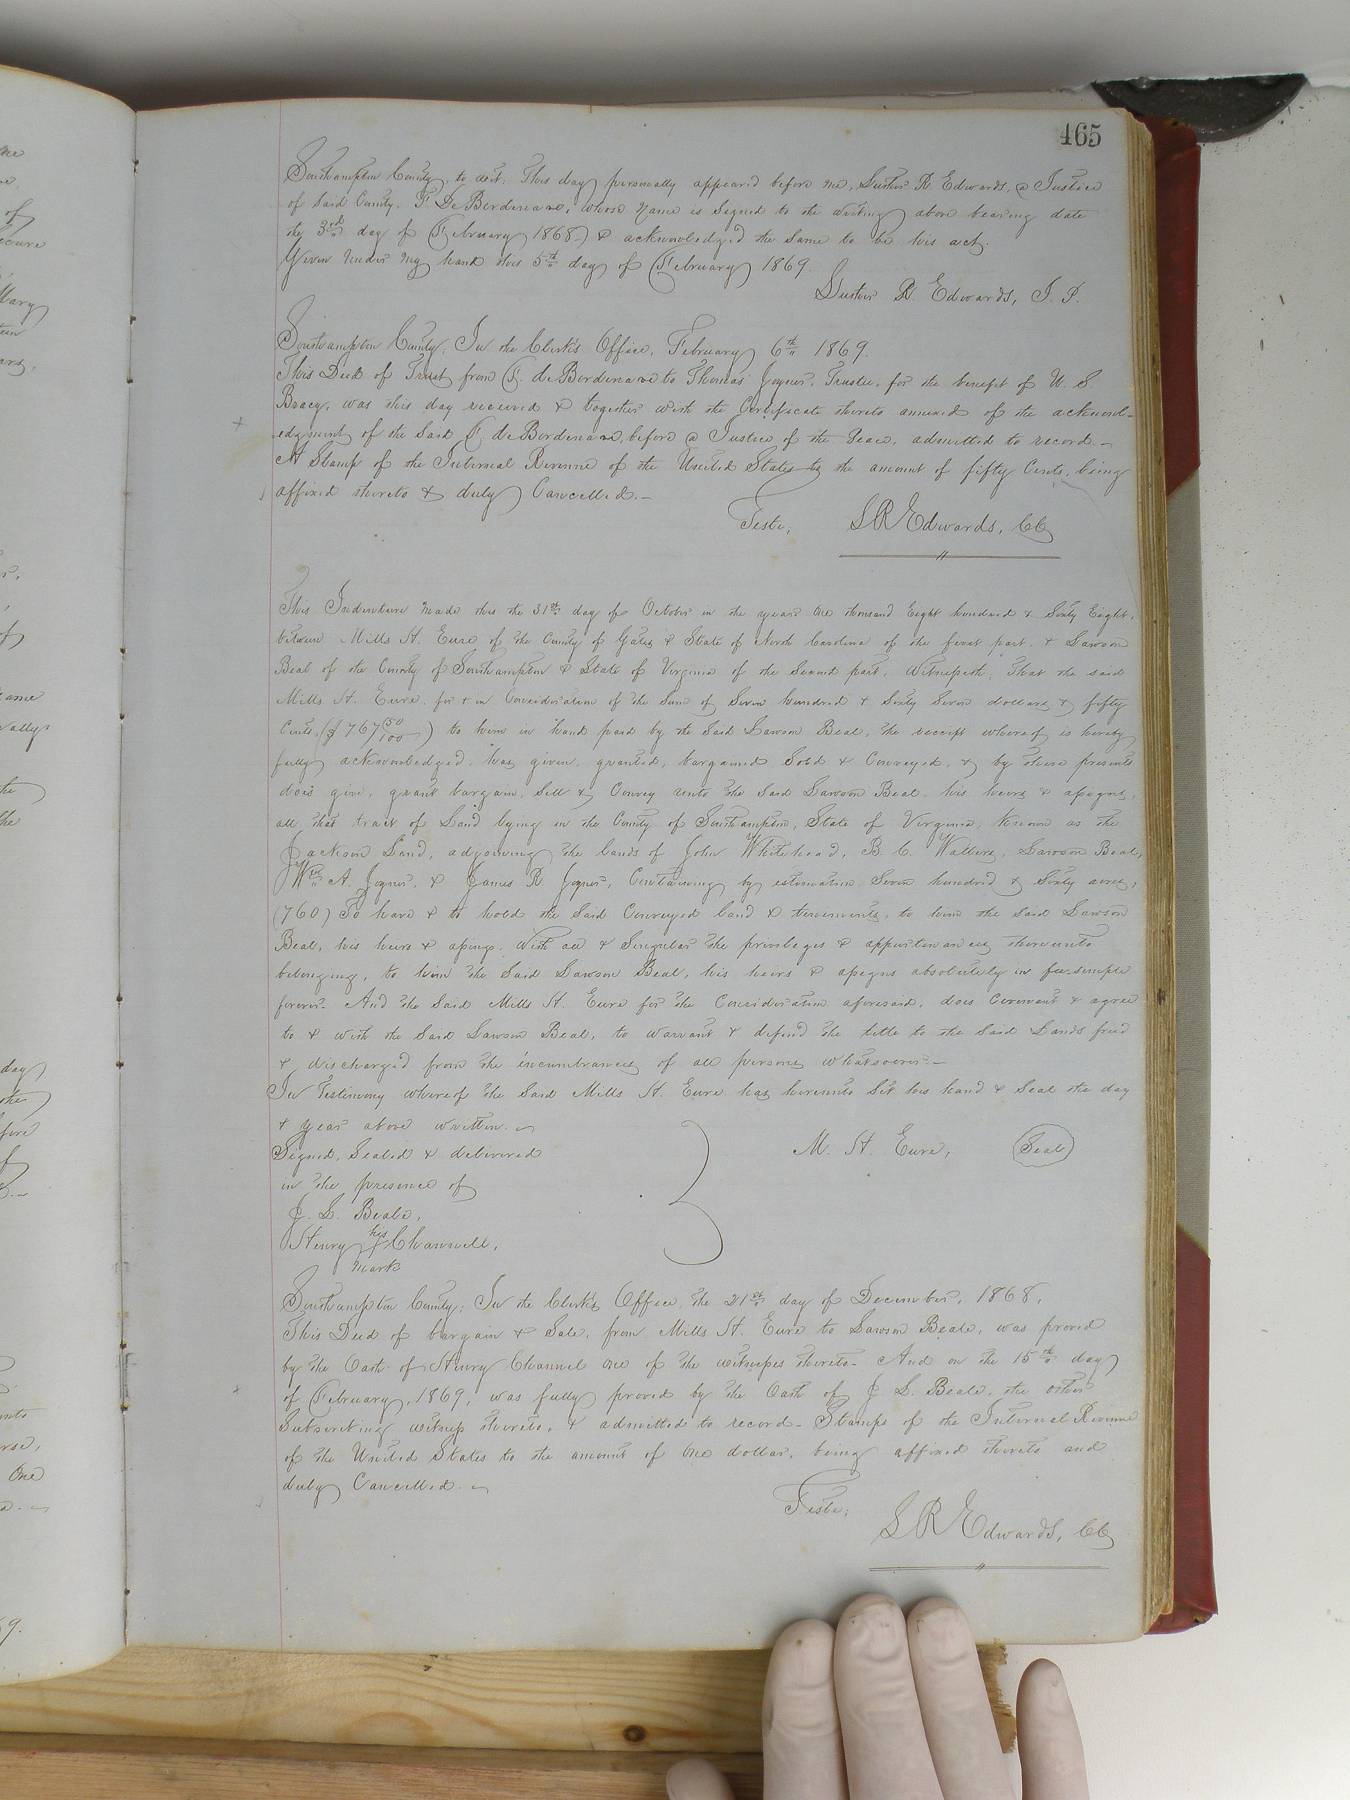 465
Southampton County, to wit: This day personally appeared before me, Gustav R. Edwards, a Justice
of Said County. F. De Bordenave, whose Name is Signed to the Writing above bearing date
the 3rd day of February 1868, & acknowledged the Same to be his act.
Given Under My hand this 5th day of February 1869.
R. Edwards, J. P.
Southampton County, In the Clerk's Office, February 6th 1869.
This Deed of Trust from F. de Bordenave to Thomas Joyner, Trustee, for the benefit of U. S.
Bracy, was this day received & together with the Certificate thereto annexed of the acknowl-
edgment of the Said F. de Bordenave, before a Justice of the Peace, admitted to record.—
A Stamp of the Internal Revenue of the United States to the amount of fifty Cents, being
affixed thereto & duly Cancelled.—
Teste, S R Edwards, CC
This Indenture Made this the 31st day of October in the year One thousand Eight hundred & Sixty Eight,
between Mills H. Eure of the County of Gates & State of North Carolina of the first part, & Lawson
Beal of the County of Southampton & State of Virginia of the Second part, Witnesseth, That the said
Mills H. Eure, for & in Consideration of the Sum of Seven hundred & Sixty Seven dollars & fifty
Cents, ($ 767 50/100) to him in hand paid by the Said Lawson Beal, the receipt whereof is hereby
fully acknowledged, has given, granted, bargained Sold & Conveyed, & by these presents
does give, grant bargain, Sell & Convey unto the Said Lawson Beal, his heirs & assigns,
all that tract of Land lying in the County of Southampton, State of Virginia, Known as the
Jackson Land, adjoining the lands of John Whitehead, B. C. Walters, Lawson Beal,
Wm A. Joyner, & James R. Joyner, Containing by estimation Seven hundred & Sixty acres,
(760) To have & to hold the Said Conveyed land & tenements, to him the Said Lawson
Beal, his heirs & assigns. With all & Singular the privileges & appurtenances thereunto
belonging, to him the Said Lawson Beal, his heirs & assigns absolutely in fee simple
forever. And the Said Mills H. Eure for the Consideration aforesaid, does Covenant & agree
to & with the Said Lawson Beal, to warrant & defend the title to the Said Lands freed
& discharged from the incumbrances of all persons whatsoever.—
In Testimony whereof the Said Mills H. Eure has hereunto Set his hand & Seal the day
& year above written.
Signed, Sealed & delivered M. H. Eure, Seal
in the presence of
J. L. Beale,
Henry his Channell,
mark
Southampton County; In the Clerk's Office, the 21st day of December, 1868,
This Deed of bargain & Sale, from Mills H. Eure to Lawson Beale, was proved
by the Oath of Henry Channel one of the witnesses thereto. And on the 15th day
of February, 1869, was fully proved by the Oath of J. L. Beale, the other
Subscribing witness thereto, & admitted to record. Stamps of the Internal Revenue
of the United States to the amount of One dollar, being affixed thereto and
duly Cancelled.
Teste, S R Edwards, CC